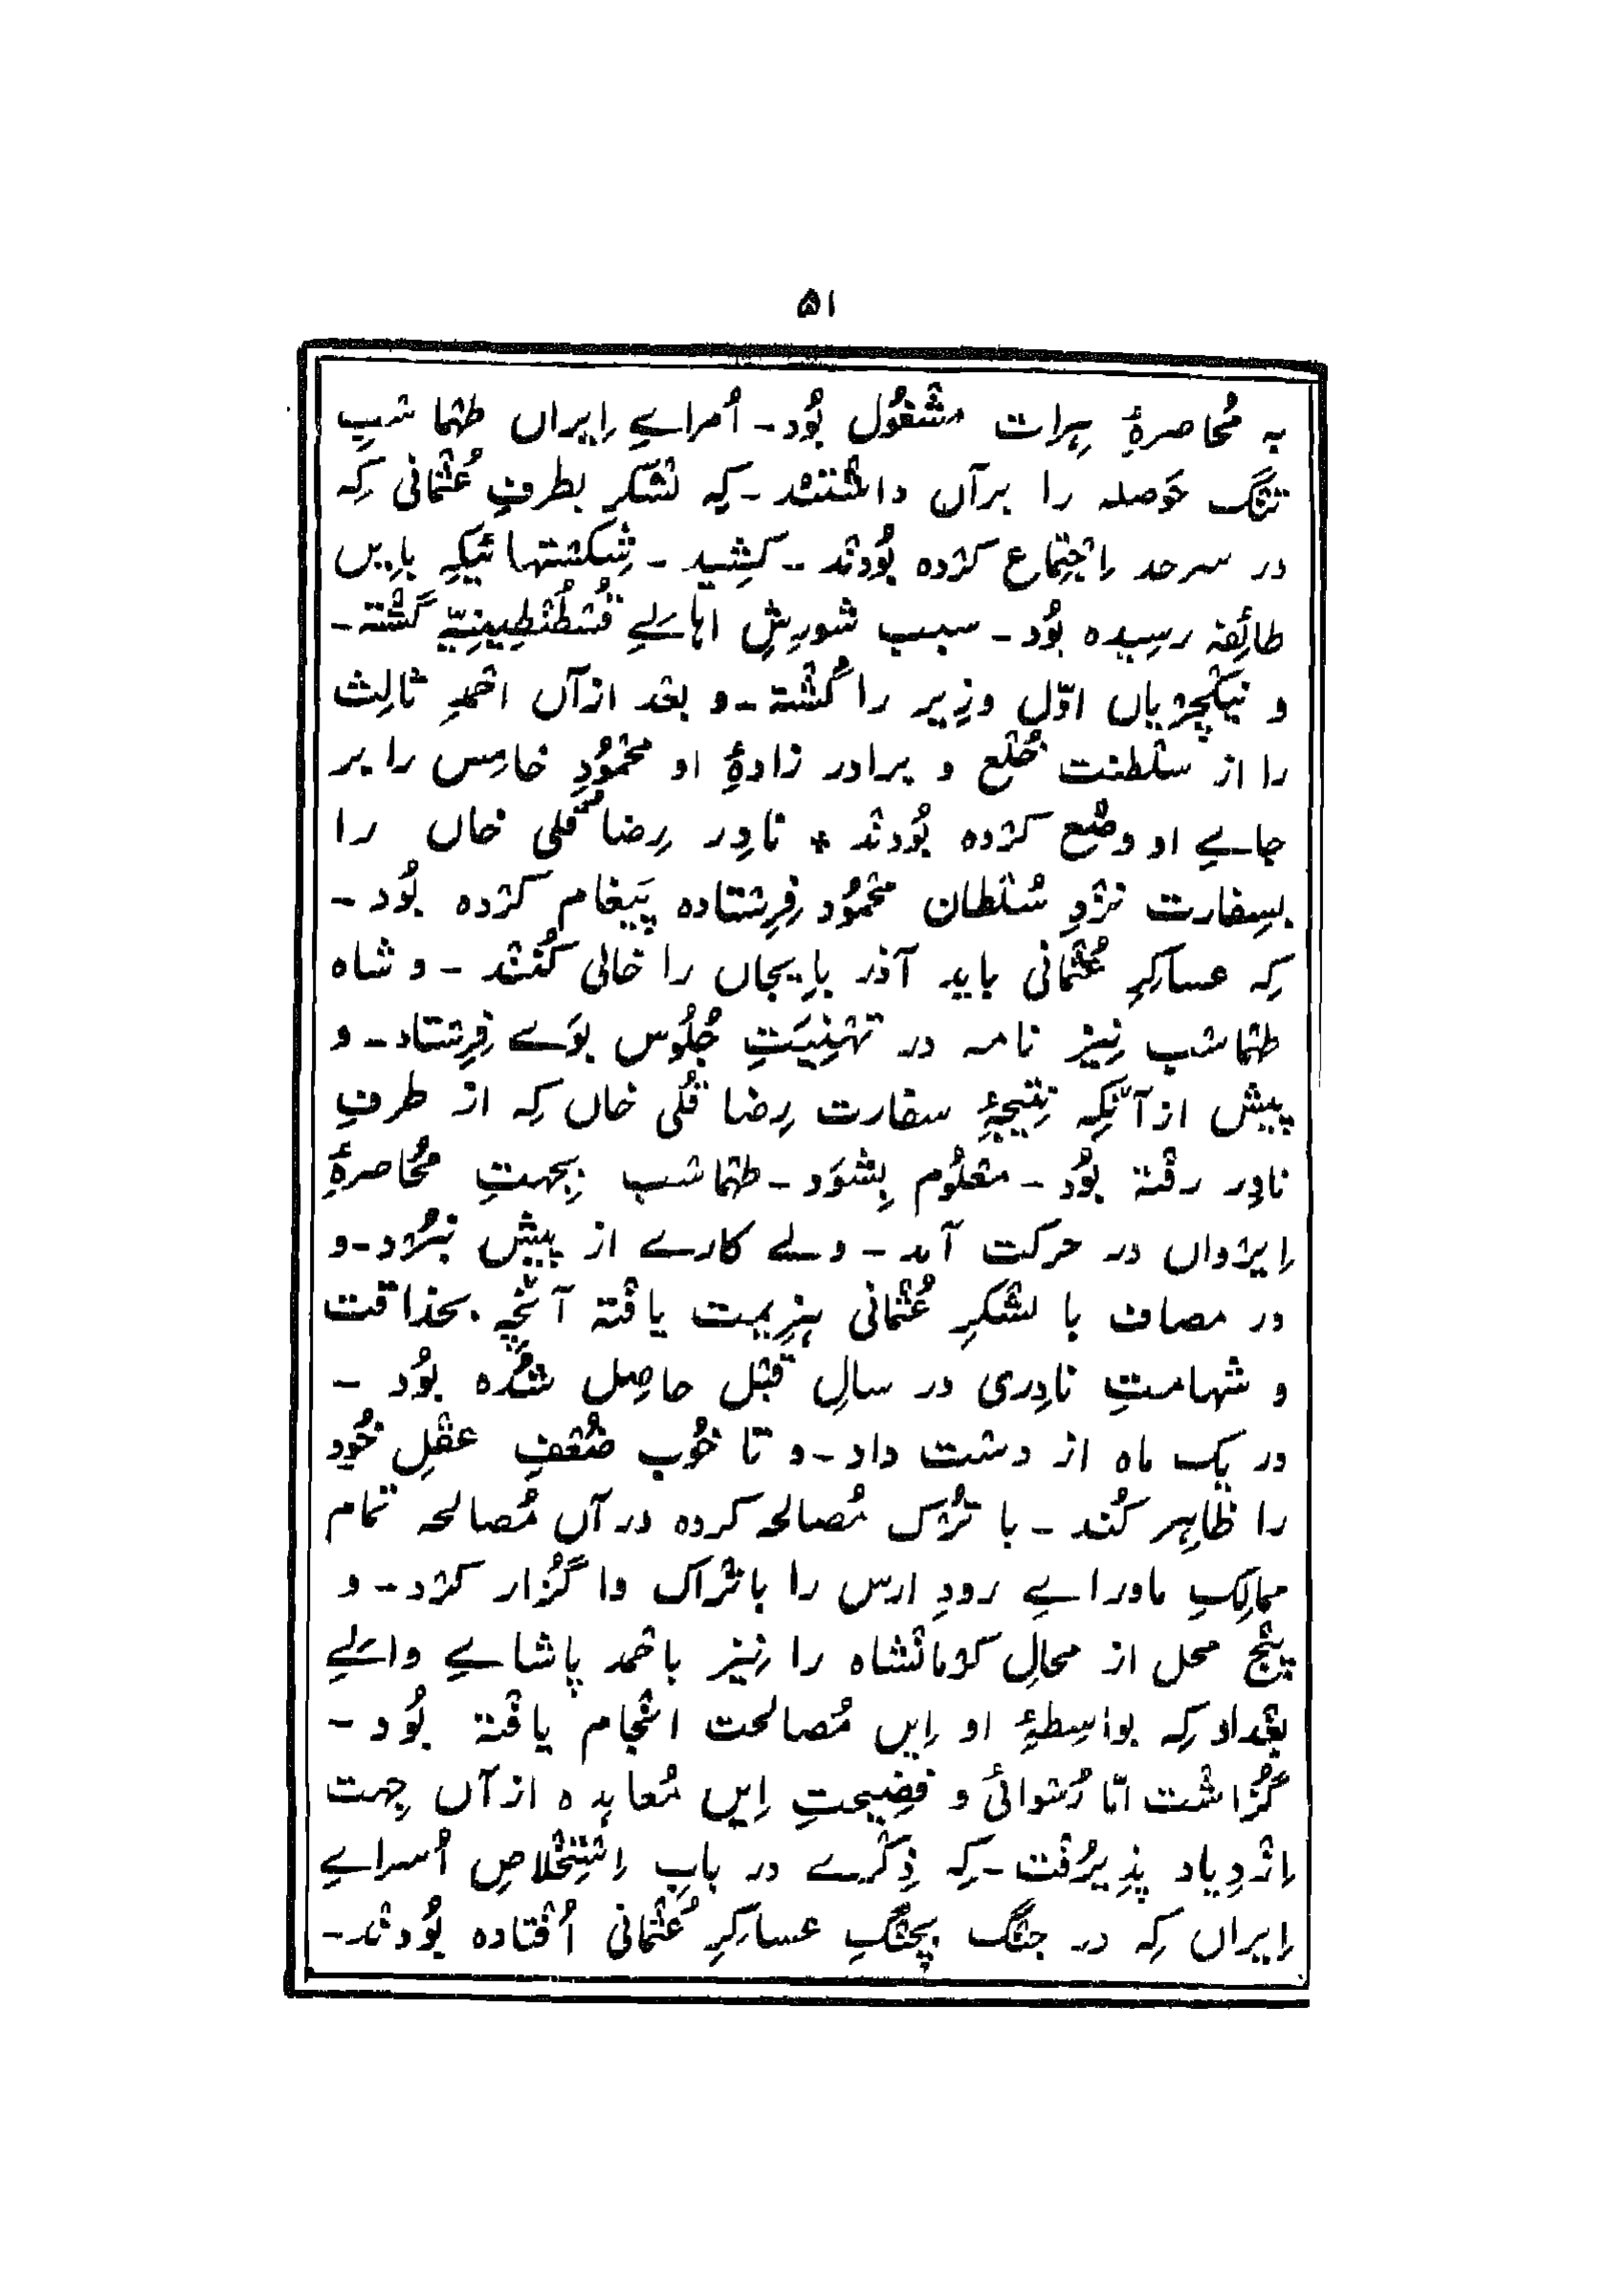 ۵۱
بہ مُحاصرۂِ ہِرات مشْغُول بُود۔ اُمراےِ اِیراں طہْماسْبِ
تنْگ حَوصلہ را برآں داشْتنْد۔ کِہ لشْکر بطرفِ عُثْمانی کِہ
در سرحد اِجْتِماع کرْدہ بُودنْد۔ کشِید۔ شِکسْتہائیکِہ بااِیں
طائِفہ رسِیدہ بُود۔ سبب شورِشِ اہالیےِ قُسْطُنْطِینِیّہ گشْتہ۔
و نیکْچرْیاں اوّل وزِیر را کُشْتہ۔ و بعْد ازآں احْمدِ ثالِث
را از سلْطنت خُلْع و برادر زادۂِ او محْمُودِ خامِس را بر
جاےِ او وضْع کرْدہ بُودنْد * نادِر رِضا قُلی خاں را
بسِفارت نزْدِ سُلْطان محْمُود فِرِسْتادہ پَیغام کرْدہ بُود۔
کِہ عساکِرِ عُثْمانی باید آذر بایجاں را خالی کُنند۔ و شاہ
طہْماسْب نِیز نامہ در تہْنِیَتِ جُلُوس بوَے فِرِسْتاد۔ و
پیش ازآنْکِہ نتِیجۂِ سفارت رِضا قُلی خاں کِہ از طرفِ
نادِر رفْتہ بُود۔ معْلُوم بِشوَد۔ طہْماسْب بِجہتِ مُحاصرۂِ
اِیرْواں در حرکت آمد۔ ولے کارے از پیش نبُرْد۔ و
در مصاف با لشْکرِ عُثْمانی ہِزِیمت یافْتہ آنْچِہ بحذاقت
و شہامتِ نادِری در سالِ قبْل حاصِل شُدہ بُود۔
در یک ماہ از دسْت داد۔ و تا خُوب ضُعْفِ عقْلِ خُود
را ظاہِر کُند۔ با تُرْک مُصالحہ کردہ درآں مُصالحہ تمام
ممالِکِ ماوراےِ رودِ ارس را باتْراک وا گُزار کرْد۔ و
پنْج محل از محالِ کرْمانْشاہ را نِیز باحْمد پاشاےِ والیےِ
بغْداد کِہ بواسِطۂِ او اِیں مُصالحت انْجام یافْتہ بُود۔
گُزاشْت امّا رُسْوائی و فضِیحتِ اِیں مُعاہدہ ازآں جِہت
اِزْدِیاد پذِیرُفْت۔ کِہ ذِکْرے در بابِ اِسْتِخْلاصِ اُسراےِ
اِیراں کِہ در جنْگ بچنْگِ عساکِرِ عُثْمانی اُفْتادہ بُودنْد۔